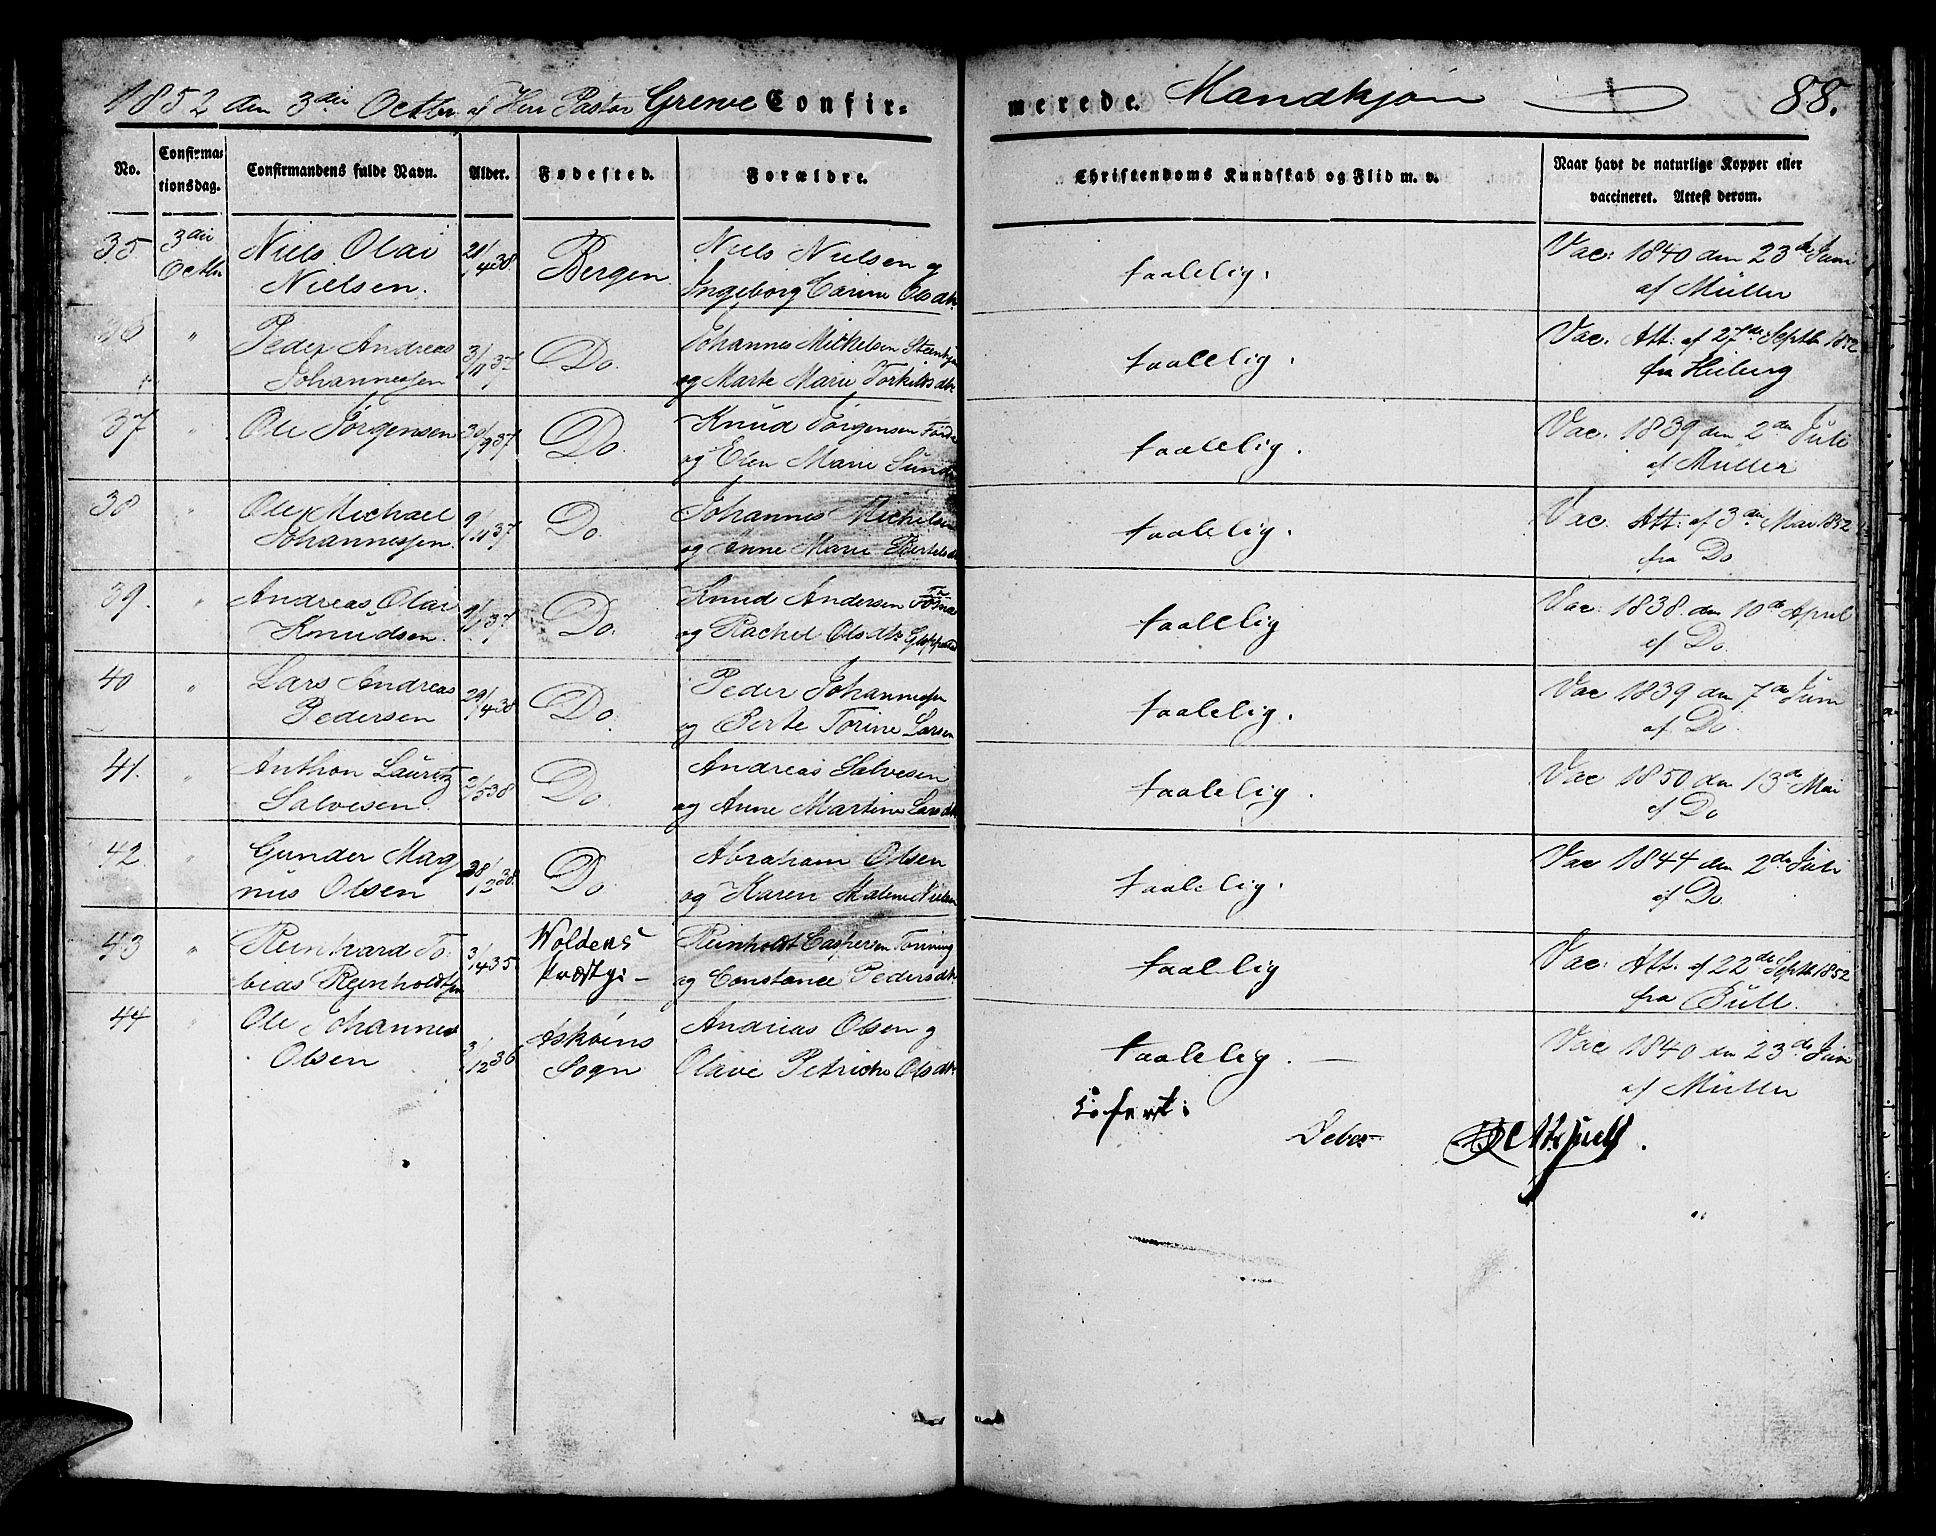 1852 den 3die Octbr af Herr Pastor Grewe Confir-
merede. Mandkjön 88.
No. Confirma-tionsdag. Confirmandens fulde Navn. Alder. Fødested. Forældre. Christendoms Kundskab og Flid m. v. Naar havt de naturlige Kopper eller vaccineret. Attest derom.
35 3die Niels Olai 21/4 38 Bergen Niels Nielsen og taalelig. Vac: 1840 den 23de Juni
Octbr Nielsen. Ingeborg Carine Olsdtr af Müller
36 " Peder Andreas 3/11 37 Do. Johannes Mikkelsen taalelig. Vac. Att: af 27de Septbr 1852
Johannessen og Marte Marie Torkilsdtr fra Heiberg
37 " Ole Jörgensen 30/9 37 Do. Knud Jörgensen taalelig. Vac. 1839 den 2den Juli
og Marie af Müller
38 " Ole Michael 9/11 37 Do. Johannes Michelsen taalelig. Vac. Att: af 3die Mai 1852
Johannessen. og Anne Marie fra Do
39. " Andreas Olai 37 Do. Knud Andersen taalelig Vac: 1838. den 10de April
Knudsen. og Rachel Olsdtr af Do.
40 " Lars Andreas 29/4 38 Do. Peder Johannessen taalelig. Vac 1839 den 7de Juni
Pedersen og Berte Torine Larsen af Do.
41. " Anthon Lauritz 2/5 38 Do. Andreas Salvesen taalelig. Vac 1850 den 13de Mai
Salvesen. og Anne Martine Larsdtr af Do
42. " Gunder Mag 38 Do. Abraham Olsen taalelig. Vac 1844 den 2den Juli
nus Olsen og Karen Malene Nielsen af Do
43 " Reinhard To 3/4 35. Woldens Reinholdt Caspersen taalelig Vac: Att. af 22de Septbr 1852
bias Reinholdtsen Præstgj- og Constance Pedersdtr. fra Bull.
44 " Ole Johannes 3/12 36 Askøens Andreas Olsen og taalelig. — Vac 1840 den 23de Juni
Olsen Sogn Olave Olsdtr. af Müller